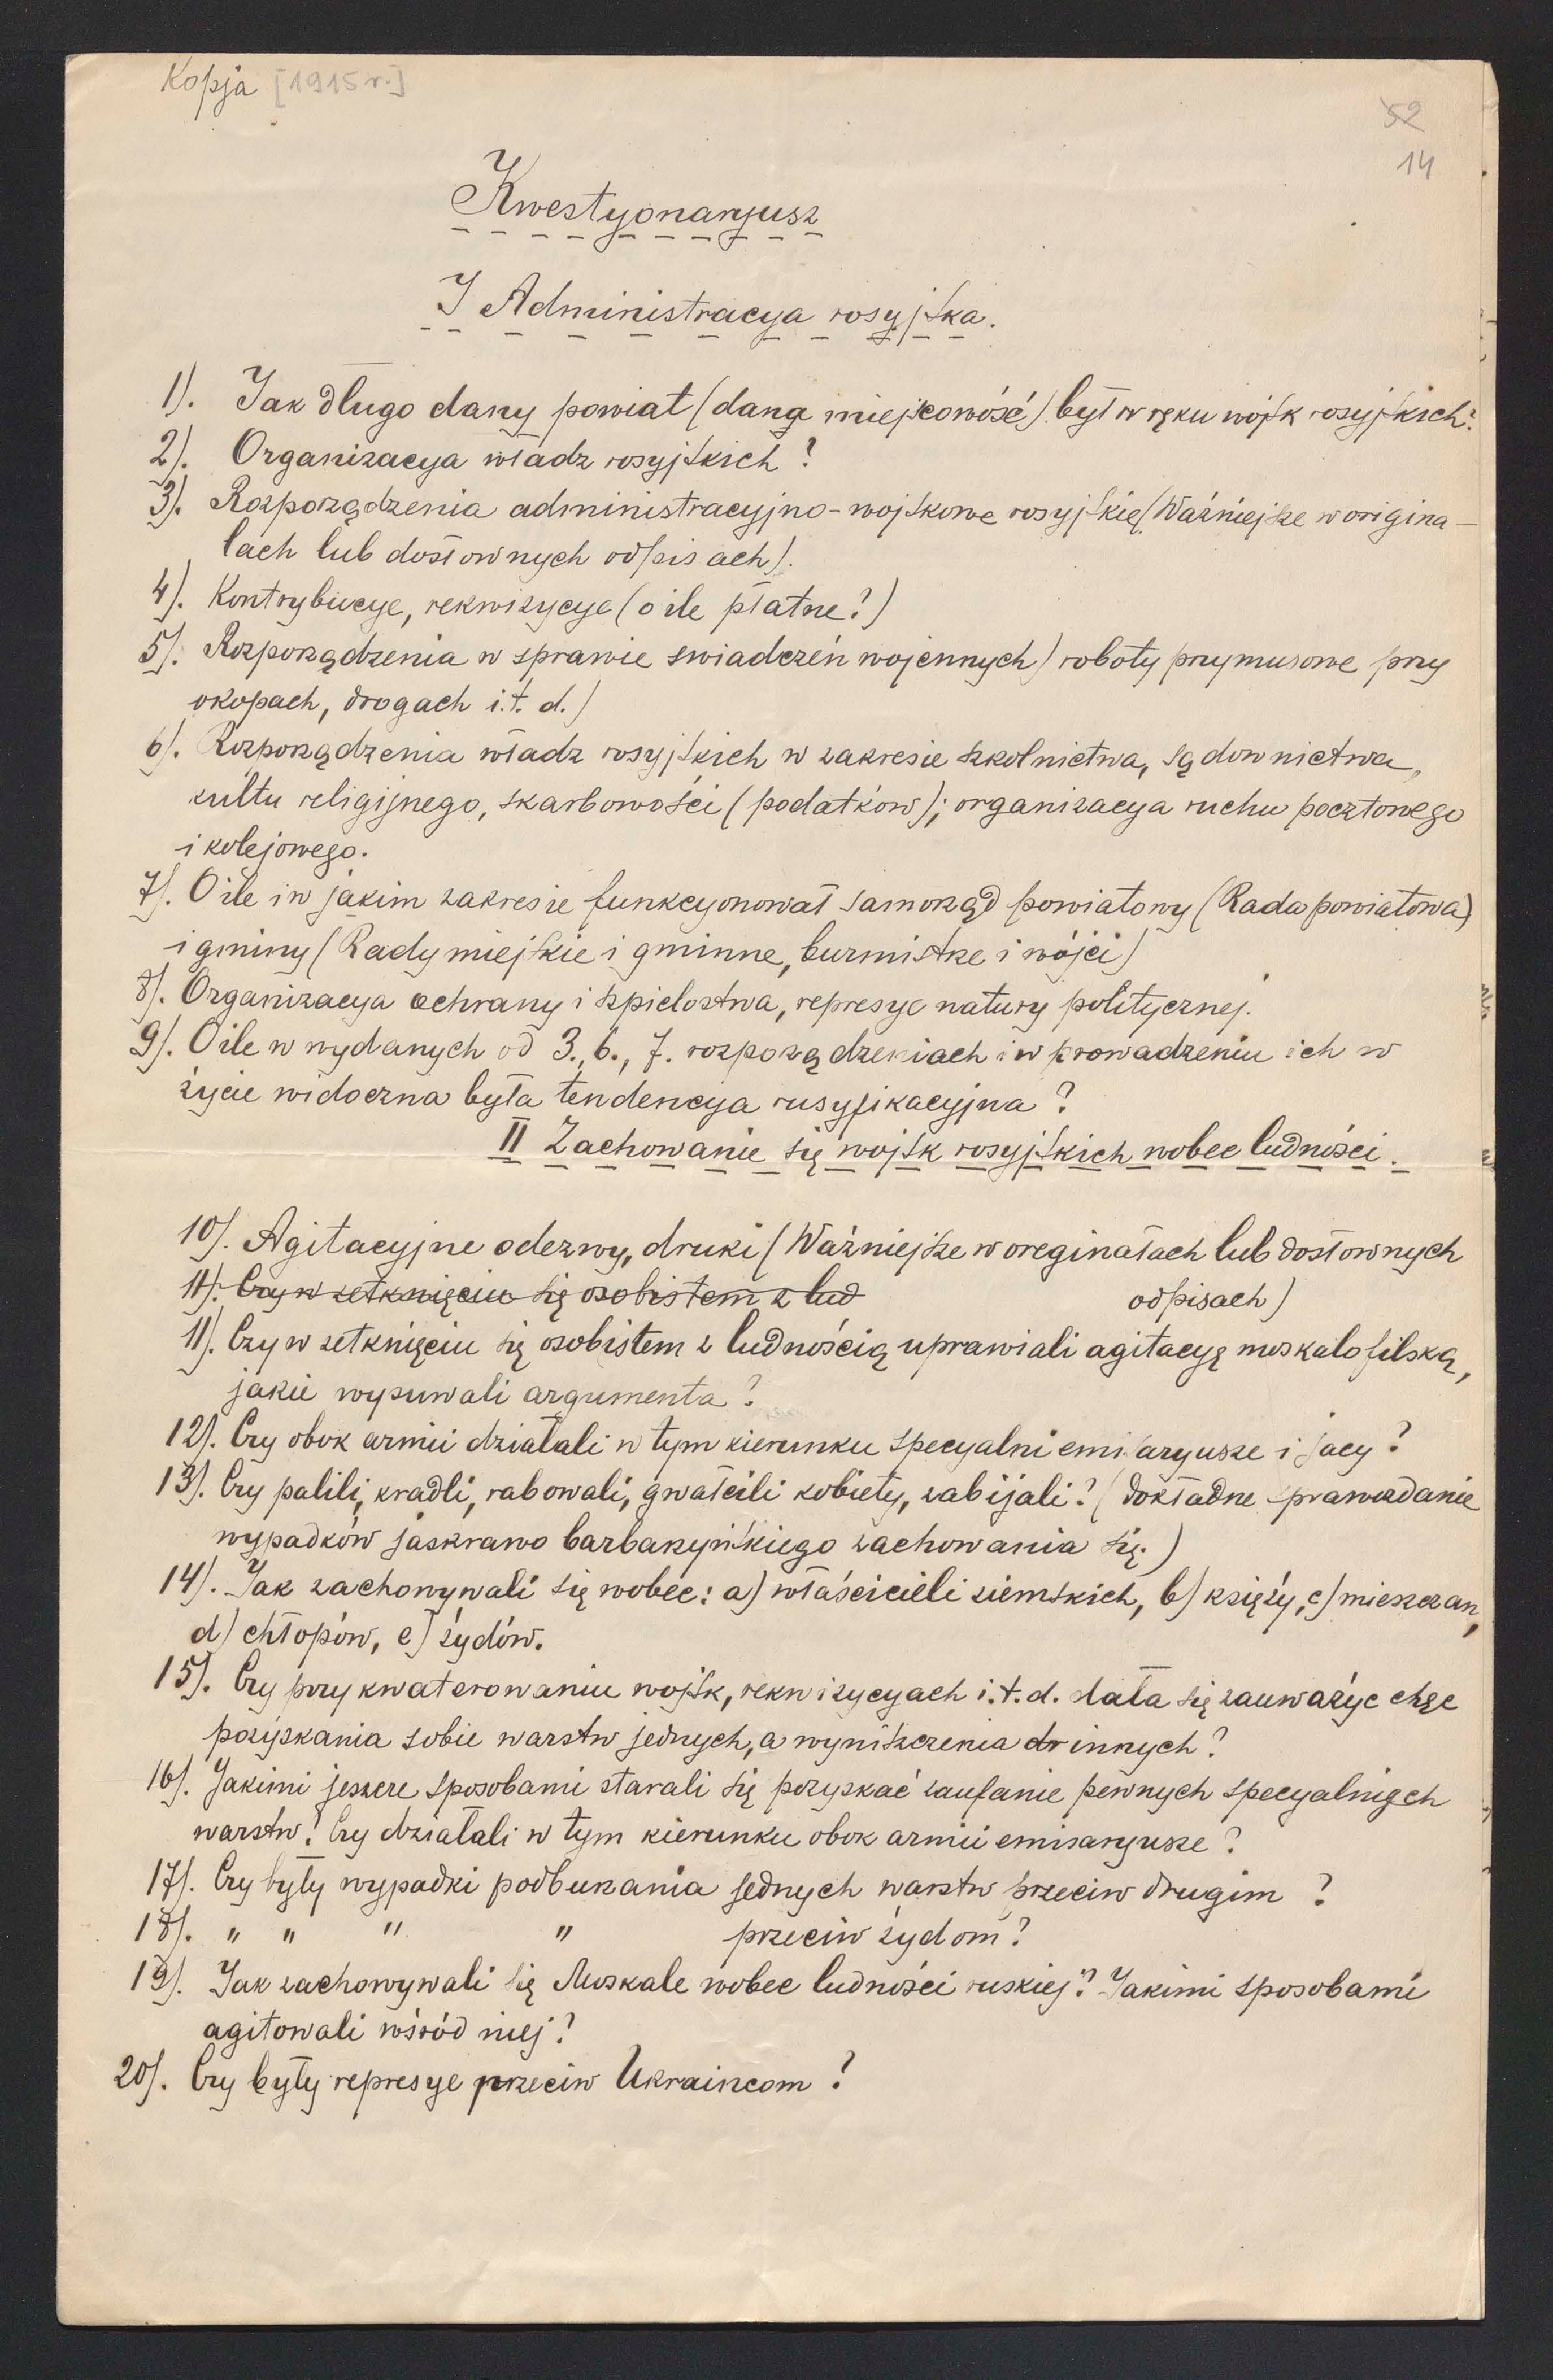 Kopja [1915 r.]
52
14
Kwestyonaryusz
I Administracya rosyjska.
1). Jak długo dany powiat (dana miejscowość) był w ręku wojsk rosyjskich?
2). Organizacya władz rosyjskich?
3). Rozporządzenia administracyjno-wojskowe rosyjskie (Ważniejsze w origina-
lach lub dosłownych odpisach).
4). Kontrybucye, rekwizycye (o ile płatne?)
5). Rozporządzenia w sprawie swiadczeń wojennych) roboty przymusowe przy
okopach, drogach i.t. d.)
6). Rozporządzenia władz rosyjskich w zakresie szkolnictwa, sądownictwa,
kultu religijnego, skarbowości (podatków); organizacya ruchu pocztowego
i kolejowego.
7). O ile i w jakim zakresie funkcyonował samorząd powiatowy (Rada powiatowa)
i gminy (Rady miejskie i gminne, burmistrze i wójci)
8). Organizacya ochrany i szpielostwa, represye natury politycznej.
9). O ile w wydanych od 3., 6., 7. rozporządzeniach i w prowadzeniu ich w
życie widoczna była tendencya rusyfikacyjna?
II Zachowanie się wojsk rosyjskich wobec ludności.
10). Agitacyjne odezwy, druki (Ważniejsze w oreginałach lub dosłownych
11). Czy w zetknięciu się osobistem z lud
odpisach)
11). Czy w zetknięciu się osobistem z ludnością uprawiali agitacyę moskalofilską,
jakie wysuwali argumenta?
12). Czy obok armii działali w tym kierunku specyalni emisaryusze i jacy?
13). Czy palili, kradli, rabowali, gwałcili kobiety, zabijali? (Dokładne sprawozdanie
wypadków jaskrawo barbarzyńskiego zachowania się.)
14). Jak zachowywali się wobec: a) właścicieli ziemskich, b) księży, c) mieszczan,
d) chłopów, e) żydów.
15). Czy przy kwaterowaniu wojsk, rekwizycyach i.t.d. dała się zauważyc chęc
pozyskania sobie warstw jednych, a wyniszczenia dr innych?
16). Jakimi jeszcze sposobami starali się pozyskać zaufanie pewnych specyalnych
warstw? Czy działali w tym kierunku obok armii emisaryusze?
17). Czy były wypadki podburzania jednych warstw przeciw drugim?
18). " " " " przeciw żydom?
19). Jak zachowywali się Moskale wobec ludności ruskiej? Jakimi sposobami
agitowali wśród niej?
20). Czy były represye przeciw Ukraincom?